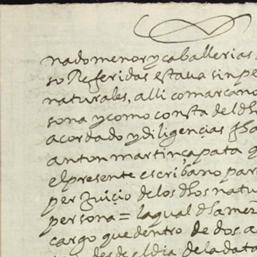 nado menor y caballerias
so Referidas estaua sin per
naturales, alli comarcano
sona y como consta del dho
acordado y diligencias
anton martin çapata
el presente escribano par
perjuicio de los dhos natu
persona = la qual dha mer
cargo que dentro de dos a
desde el dia de la data